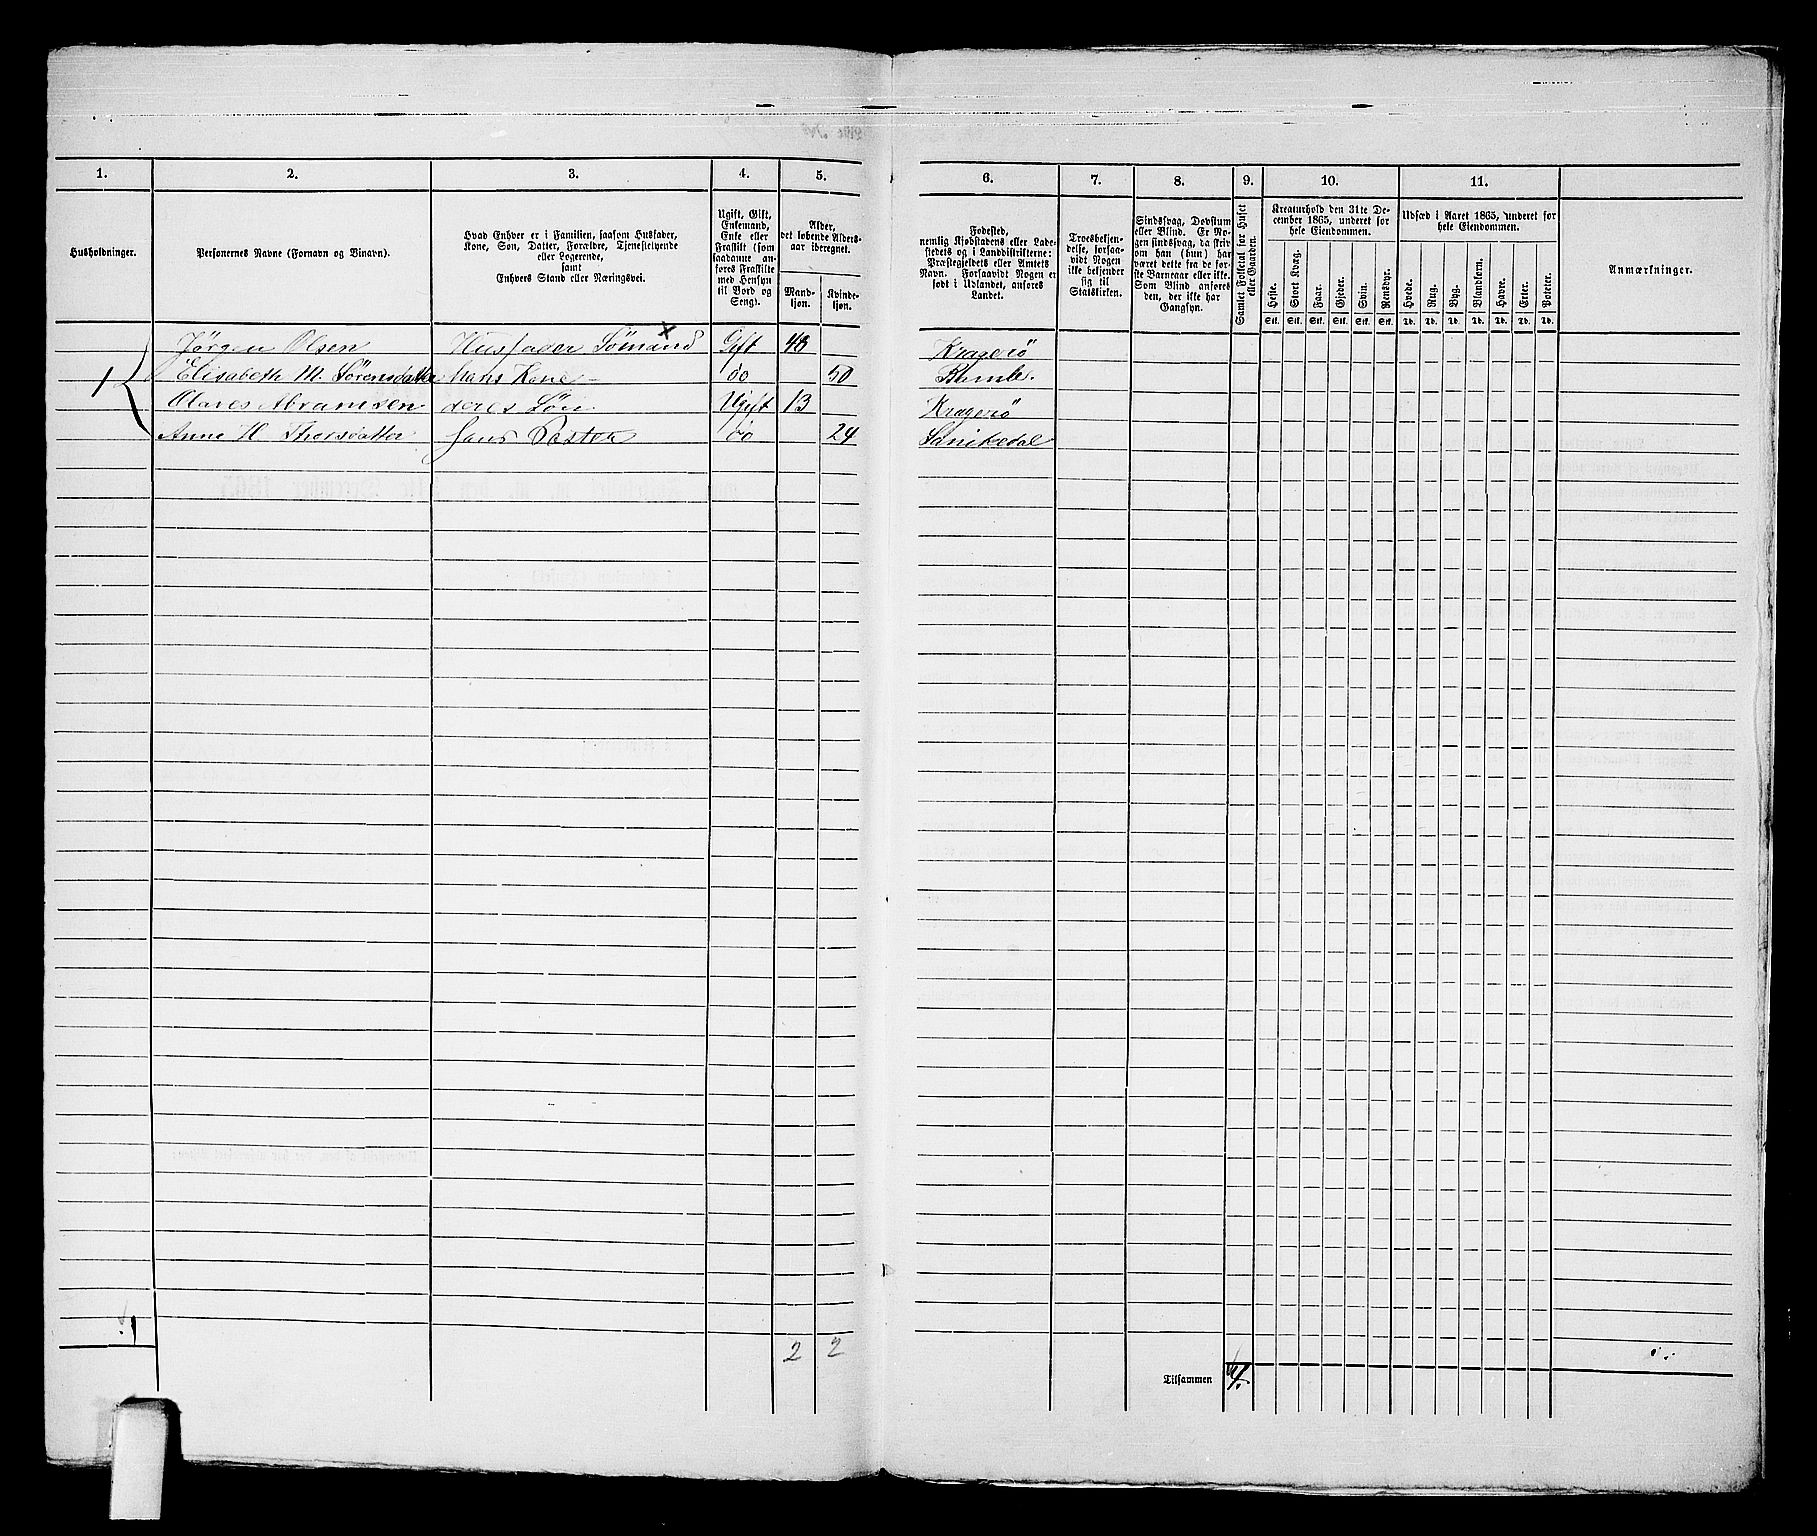 1.
2.
3.
4.
5.
6.
7.
8.
9.
10.
11.
Husholdninger.
Personernes Navne (Fornavn og Binavn).
Hvad Enhver er i Familien, saasom Husfader,
Kone, Søn, Datter, Forældre, Tjenestetyende
eller Logerende,
samt
Enhvers Stand eller Næringsvei.
Ugift, Gift,
Enkemand,
Enke eller
Fraskilt (som
saadanne an-
føres Fraskilte
med Hensyn
til Bord og
Seng).
Alder,
det løbende Alders-
aar iberegnet.
Mand-
kjøn.
Kvinde-
kjøn.
Fødested,
nemlig Kjøbstadens eller Lade-
stedets og i Landdistrikterne:
Præstegjeldets eller Amtets
Navn. Forsaavidt Nogen er
født i Udlandet, anføres
Landet.
Troesbekjen-
delse, forsaa-
vidt Nogen
ikke bekjender
sig til
Statskirken.
Sindssvag, Døvstum
eller Blind. Er No-
gen sindssvag, da skriv
om han (hun) har
været dette fra de før-
ste Barneaar eller ikke.
Som Blind anføres
den, der ikke har
Gangsyn.
Samlet Folketal for Huset
eller Gaarden.
Kreaturhold den 31te De-
cember 1865, underet for
hele Eiendommen.
Heste.
Stort Kvæg.
Faar.
Gjeder.
Svin.
Rensdyr.
Stk. Stk. Stk. Stk. Stk. Stk.
Udsæd i Aaret 1865, underet for
hele Eiendommen.
Hvede.
Rug.
Byg.
Blandkorn.
Havre.
Erter.
Poteter.
Td. Td. Td. Td. Td. Td. Td.
Anmærkninger.
1 Jørgen Olsen Husfader Sömand x Gift 48 Kragerö
Elisabeth M. Sörensdatter Hans Kone do 50 Bamle.
Olaves Abramsen deres Sön Ugift 13 Kragerö
Anne H Thorsdatter hans Söster do 24 Sanikedal
1
2 2
Tilsammen 4.